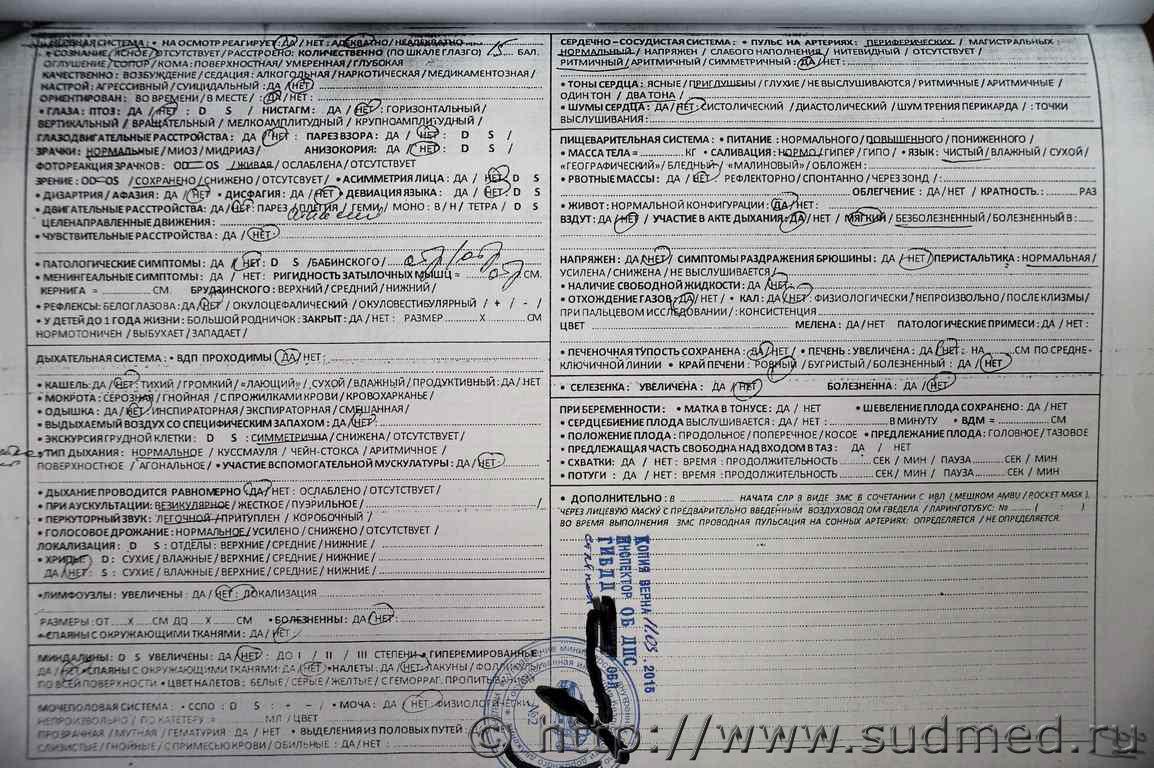 НЕРВНАЯ СИСТЕМА : • НА ОСМОТР РЕАГИРУЕТ: ДА / НЕТ : АДЕКВАТНО / НЕАДЕКВАТНО
• СОЗНАНИЕ / ЯСНОЕ / ОТСУТСТВУЕТ / РАССТРОЕНО: КОЛИЧЕСТВЕННО (ПО ШКАЛЕ ГЛАЗГО) 15 БАЛ.
ОГЛУШЕНИЕ / СОПОР / КОМА : ПОВЕРХНОСТНАЯ / УМЕРЕННАЯ / ГЛУБОКАЯ
КАЧЕСТВЕННО: ВОЗБУЖДЕНИЕ / СЕДАЦИЯ : АЛКОГОЛЬНАЯ / НАРКОТИЧЕСКАЯ / МЕДИКАМЕНТОЗНАЯ /
НАСТРОЙ : АГРЕССИВНЫЙ / СУИЦИДАЛЬНЫЙ : ДА / НЕТ :
ОРИЕНТИРОВАН : ВО ВРЕМЕНИ / В МЕСТЕ / : ДА / НЕТ :
• ГЛАЗА : ПТОЗ : ДА / НЕТ : D S / НИСТАГМ : ДА / НЕТ : ГОРИЗОНТАЛЬНЫЙ /
ВЕРТИКАЛЬНЫЙ / ВРАЩАТЕЛЬНЫЙ / МЕЛКОАМПЛИТУДНЫЙ / КРУПНОАМПЛИТУДНЫЙ /
ГЛАЗОДВИГАТЕЛЬНЫЕ РАССТРОЙСТВА : ДА / НЕТ : ПАРЕЗ ВЗОРА : ДА / НЕТ : D S /
ЗРАЧКИ : НОРМАЛЬНЫЕ / МИОЗ / МИДРИАЗ / АНИЗОКОРИЯ: ДА / НЕТ : D S /
ФОТОРЕАКЦИЯ ЗРАЧКОВ : OD = OS / ЖИВАЯ / ОСЛАБЛЕНА / ОТСУТСТВУЕТ
ЗРЕНИЕ : OD = OS / СОХРАНЕНО / СНИЖЕНО / ОТСУТСВУЕТ / • АСИММЕТРИЯ ЛИЦА : ДА / НЕТ : D S
• ДИЗАРТРИЯ / АФАЗИЯ : ДА / НЕТ • ДИСФАГИЯ : ДА / НЕТ • ДЕВИАЦИЯ ЯЗЫКА : ДА / НЕТ : D S
• ДВИГАТЕЛЬНЫЕ РАССТРОЙСТВА: ДА / НЕТ: ПАРЕЗ / ПЛЕГИЯ / ГЕМИ / МОНО : В / Н / ТЕТРА / D S
ЦЕЛЕНАПРАВЛЕННЫЕ ДВИЖЕНИЯ :
• ЧУВСТВИТЕЛЬНЫЕ РАССТРОЙСТВА : ДА / НЕТ :
• ПАТОЛОГИЧЕСКИЕ СИМПТОМЫ : ДА / НЕТ: D S /БАБИНСКОГО / отр / отр
• МЕНИНГЕАЛЬНЫЕ СИМПТОМЫ : ДА / НЕТ : РИГИДНОСТЬ ЗАТЫЛОЧНЫХ МЫШЦ = отр СМ.
КЕРНИГА = СМ. БРУДЗИНСКОГО : ВЕРХНИЙ / СРЕДНИЙ / НИЖНИЙ /
• РЕФЛЕКСЫ : БЕЛОГЛАЗОВА : ДА / НЕТ / ОКУЛОЦЕФАЛИЧЕСКИЙ / ОКУЛОВЕСТИБУЛЯРНЫЙ / + / - /
• У ДЕТЕЙ ДО 1 ГОДА ЖИЗНИ : БОЛЬШОЙ РОДНИЧОК : ЗАКРЫТ : ДА / НЕТ : РАЗМЕР Х СМ
НОРМОТОНИЧЕН / ВЫБУХАЕТ / ЗАПАДАЕТ /
ДЫХАТЕЛЬНАЯ СИСТЕМА : • ВДП ПРОХОДИМЫ ДА / НЕТ :
• КАШЕЛЬ: ДА / НЕТ: ТИХИЙ / ГРОМКИЙ / «ЛАЮЩИЙ» / СУХОЙ / ВЛАЖНЫЙ / ПРОДУКТИВНЫЙ : ДА / НЕТ
• МОКРОТА : СЕРОЗНАЯ / ГНОЙНАЯ / С ПРОЖИЛКАМИ КРОВИ / КРОВОХАРКАНЬЕ /
• ОДЫШКА : ДА / НЕТ: ИНСПИРАТОРНАЯ / ЭКСПИРАТОРНАЯ / СМЕШАННАЯ /
• ВЫДЫХАЕМЫЙ ВОЗДУХ СО СПЕЦИФИЧЕСКИМ ЗАПАХОМ : ДА / НЕТ:
• ЭКСКУРСИЯ ГРУДНОЙ КЛЕТКИ : D S : СИММЕТРИЧНА / СНИЖЕНА / ОТСУТСТВУЕТ /
• ТИП ДЫХАНИЯ : НОРМАЛЬНОЕ / КУССМАУЛЯ / ЧЕЙН-СТОКСА / АРИТМИЧНОЕ /
ПОВЕРХНОСТНОЕ / АГОНАЛЬНОЕ / • УЧАСТИЕ ВСПОМОГАТЕЛЬНОЙ МУСКУЛАТУРЫ : ДА / НЕТ:
• ДЫХАНИЕ ПРОВОДИТСЯ РАВНОМЕРНО : ДА / НЕТ : ОСЛАБЛЕНО / ОТСУТСТВУЕТ /
• ПРИ АУСКУЛЬТАЦИИ: ВЕЗИКУЛЯРНОЕ / ЖЕСТКОЕ / ПУЭРИЛЬНОЕ / /
• ПЕРКУТОРНЫЙ ЗВУК : ЛЕГОЧНОЙ / ПРИТУПЛЕН / КОРОБОЧНЫЙ /
• ГОЛОСОВОЕ ДРОЖАНИЕ : НОРМАЛЬНОЕ / УСИЛЕНО / СНИЖЕНО / ОТСУТСТВУЕТ /
ЛОКАЛИЗАЦИЯ : D S : ОТДЕЛЫ : ВЕРХНИЕ / СРЕДНИЕ / НИЖНИЕ /
• ХРИПЫ: D : СУХИЕ / ВЛАЖНЫЕ / ВЕРХНИЕ / СРЕДНИЕ / НИЖНИЕ /
ДА / НЕТ : S : СУХИЕ / ВЛАЖНЫЕ / ВЕРХНИЕ / СРЕДНИЕ / НИЖНИЕ /
•ЛИМФОУЗЛЫ : УВЕЛИЧЕНЫ : ДА / НЕТ : ЛОКАЛИЗАЦИЯ
РАЗМЕРЫ : ОТ Х СМ ДО Х СМ • БОЛЕЗНЕННЫ : ДА / НЕТ :
• СПАЯНЫ С ОКРУЖАЮЩИМИ ТКАНЯМИ : ДА / НЕТ :
МИНДАЛИНЫ: D S УВЕЛИЧЕНЫ : ДА / НЕТ: ДО I / II / III СТЕПЕНИ • ГИПЕРЕМИРОВАННЫЕ
ДА / НЕТ •СПАЯНЫ С ОКРУЖАЮЩИМИ ТКАНЯМИ: ДА / НЕТ •НАЛЕТЫ: ДА / НЕТ ЛАКУНЫ / ФОЛЛИКУЛЫ
ПО ВСЕЙ ПОВЕРХНОСТИ • ЦВЕТ НАЛЕТОВ : БЕЛЫЕ / СЕРЫЕ / ЖЕЛТЫЕ / С ГЕМОРРАГ. ПРОПИТЫВАНИЕМ
МОЧЕПОЛОВАЯ СИСТЕМА : • ССПО : D S : + − / • МОЧА : ДА / НЕТ: ФИЗИОЛОГИЧЕСКИ
НЕПРОИЗВОЛЬНО / ПО КАТЕТЕРУ = МЛ / ЦВЕТ
ПРОЗРАЧНАЯ / МУТНАЯ / ГЕМАТУРИЯ : ДА / НЕТ • ВЫДЕЛЕНИЯ ИЗ ПОЛОВЫХ ПУТЕЙ : ДА
СЛИЗИСТЫЕ / ГНОЙНЫЕ / С ПРИМЕСЬЮ КРОВИ / ОБИЛЬНЫЕ : ДА / НЕТ :
СЕРДЕЧНО – СОСУДИСТАЯ СИСТЕМА : • ПУЛЬС НА АРТЕРИЯХ : ПЕРИФЕРИЧЕСКИХ / МАГИСТРАЛЬНЫХ :
НОРМАЛЬНЫЙ / НАПРЯЖЕН / СЛАБОГО НАПОЛНЕНИЯ / НИТЕВИДНЫЙ / ОТСУТСТВУЕТ /
РИТМИЧНЫЙ / АРИТМИЧНЫЙ / СИММЕТРИЧНЫЙ : ДА / НЕТ :
• ТОНЫ СЕРДЦА : ЯСНЫЕ / ПРИГЛУШЕНЫ / ГЛУХИЕ / НЕ ВЫСЛУШИВАЮТСЯ / РИТМИЧНЫЕ / АРИТМИЧНЫЕ /
ОДИН ТОН / ДВА ТОНА /
• ШУМЫ СЕРДЦА : ДА / НЕТ: СИСТОЛИЧЕСКИЙ / ДИАСТОЛИЧЕСКИЙ / ШУМ ТРЕНИЯ ПЕРИКАРДА / : ТОЧКИ
ВЫСЛУШИВАНИЯ :
ПИЩЕВАРИТЕЛЬНАЯ СИСТЕМА : • ПИТАНИЕ : НОРМАЛЬНОГО / ПОВЫШЕННОГО / ПОНИЖЕННОГО /
• МАССА ТЕЛА = КГ • САЛИВАЦИЯ : НОРМО / ГИПЕР / ГИПО / • ЯЗЫК : ЧИСТЫЙ / ВЛАЖНЫЙ / СУХОЙ /
«ГЕОГРАФИЧЕСКИЙ» / БЛЕДНЫЙ / «МАЛИНОВЫЙ» / ОБЛОЖЕН :
• РВОТНЫЕ МАССЫ : ДА / НЕТ : РЕФЛЕКТОРНО / СПОНТАННО / ЧЕРЕЗ ЗОНД / :
ОБЛЕГЧЕНИЕ : ДА / НЕТ / КРАТНОСТЬ : РАЗ
• ЖИВОТ : НОРМАЛЬНОЙ КОНФИГУРАЦИИ : ДА / НЕТ :
ВЗДУТ : ДА / НЕТ / УЧАСТИЕ В АКТЕ ДЫХАНИЯ : ДА / НЕТ / МЯГКИЙ / БЕЗБОЛЕЗНЕННЫЙ / БОЛЕЗНЕННЫЙ В :
НАПРЯЖЕН : ДА / НЕТ / СИМПТОМЫ РАЗДРАЖЕНИЯ БРЮШИНЫ : ДА / НЕТ / ПЕРИСТАЛЬТИКА : НОРМАЛЬНАЯ /
УСИЛЕНА / СНИЖЕНА / НЕ ВЫСЛУШИВАЕТСЯ /
• НАЛИЧИЕ СВОБОДНОЙ ЖИДКОСТИ : ДА / НЕТ :
• ОТХОЖДЕНИЕ ГАЗОВ : ДА / НЕТ / • КАЛ : ДА / НЕТ : ФИЗИОЛОГИЧЕСКИ / НЕПРОИЗВОЛЬНО / ПОСЛЕ КЛИЗМЫ /
ПРИ ПАЛЬЦЕВОМ ИССЛЕДОВАНИИ / : КОНСИСТЕНЦИЯ
ЦВЕТ МЕЛЕНА : ДА / НЕТ ПАТОЛОГИЧЕСКИЕ ПРИМЕСИ : ДА / НЕТ :
• ПЕЧЕНОЧНАЯ ТУПОСТЬ СОХРАНЕНА : ДА / НЕТ / • ПЕЧЕНЬ : УВЕЛИЧЕНА : ДА / НЕТ : НА СМ ПО СРЕДНЕ-
КЛЮЧИЧНОЙ ЛИНИИ • КРАЙ ПЕЧЕНИ : РОВНЫЙ / БУГРИСТЫЙ / БОЛЕЗНЕННЫЙ : ДА / НЕТ
• СЕЛЕЗЕНКА : УВЕЛИЧЕНА : ДА / НЕТ БОЛЕЗНЕННА : ДА / НЕТ :
ПРИ БЕРЕМЕННОСТИ : • МАТКА В ТОНУСЕ : ДА / НЕТ • ШЕВЕЛЕНИЕ ПЛОДА СОХРАНЕНО : ДА / НЕТ
• СЕРДЦЕБИЕНИЕ ПЛОДА ВЫСЛУШИВАЕТСЯ : ДА / НЕТ : В МИНУТУ • ВДМ = СМ
• ПОЛОЖЕНИЕ ПЛОДА : ПРОДОЛЬНОЕ / ПОПЕРЕЧНОЕ / КОСОЕ • ПРЕДЛЕЖАНИЕ ПЛОДА : ГОЛОВНОЕ / ТАЗОВОЕ
• ПРЕДЛЕЖАЩАЯ ЧАСТЬ СВОБОДНА НАД ВХОДОМ В ТАЗ : ДА / НЕТ
• СХВАТКИ : ДА / НЕТ : ВРЕМЯ : ПРОДОЛЖИТЕЛЬНОСТЬ СЕК / МИН / ПАУЗА СЕК / МИН
• ПОТУГИ : ДА / НЕТ : ВРЕМЯ : ПРОДОЛЖИТЕЛЬНОСТЬ СЕК / МИН / ПАУЗА СЕК / МИН
• ДОПОЛНИТЕЛЬНО : В НАЧАТА СЛР В ВИДЕ ЗМС В СОЧЕТАНИИ С ИВЛ ( МЕШКОМ AMBU / POCKET MASK ),
ЧЕРЕЗ ЛИЦЕВУЮ МАСКУ С ПРЕДВАРИТЕЛЬНО ВВЕДЕННЫМ ВОЗДУХОВОДОМ ГВЕДЕЛА / ЛАРИНГОТУБУС : № ( : )
ВО ВРЕМЯ ВЫПОЛНЕНИЯ ЗМС ПРОВОДНАЯ ПУЛЬСАЦИЯ НА СОННЫХ АРТЕРИЯХ: ОПРЕДЕЛЯЕТСЯ / НЕ ОПРЕДЕЛЯЕТСЯ.
КОПИЯ ВЕРНА 11.05.2016
ИНСПЕКТОР ОБ ДПС
ГИБДД
© http://www.sudmed.ru